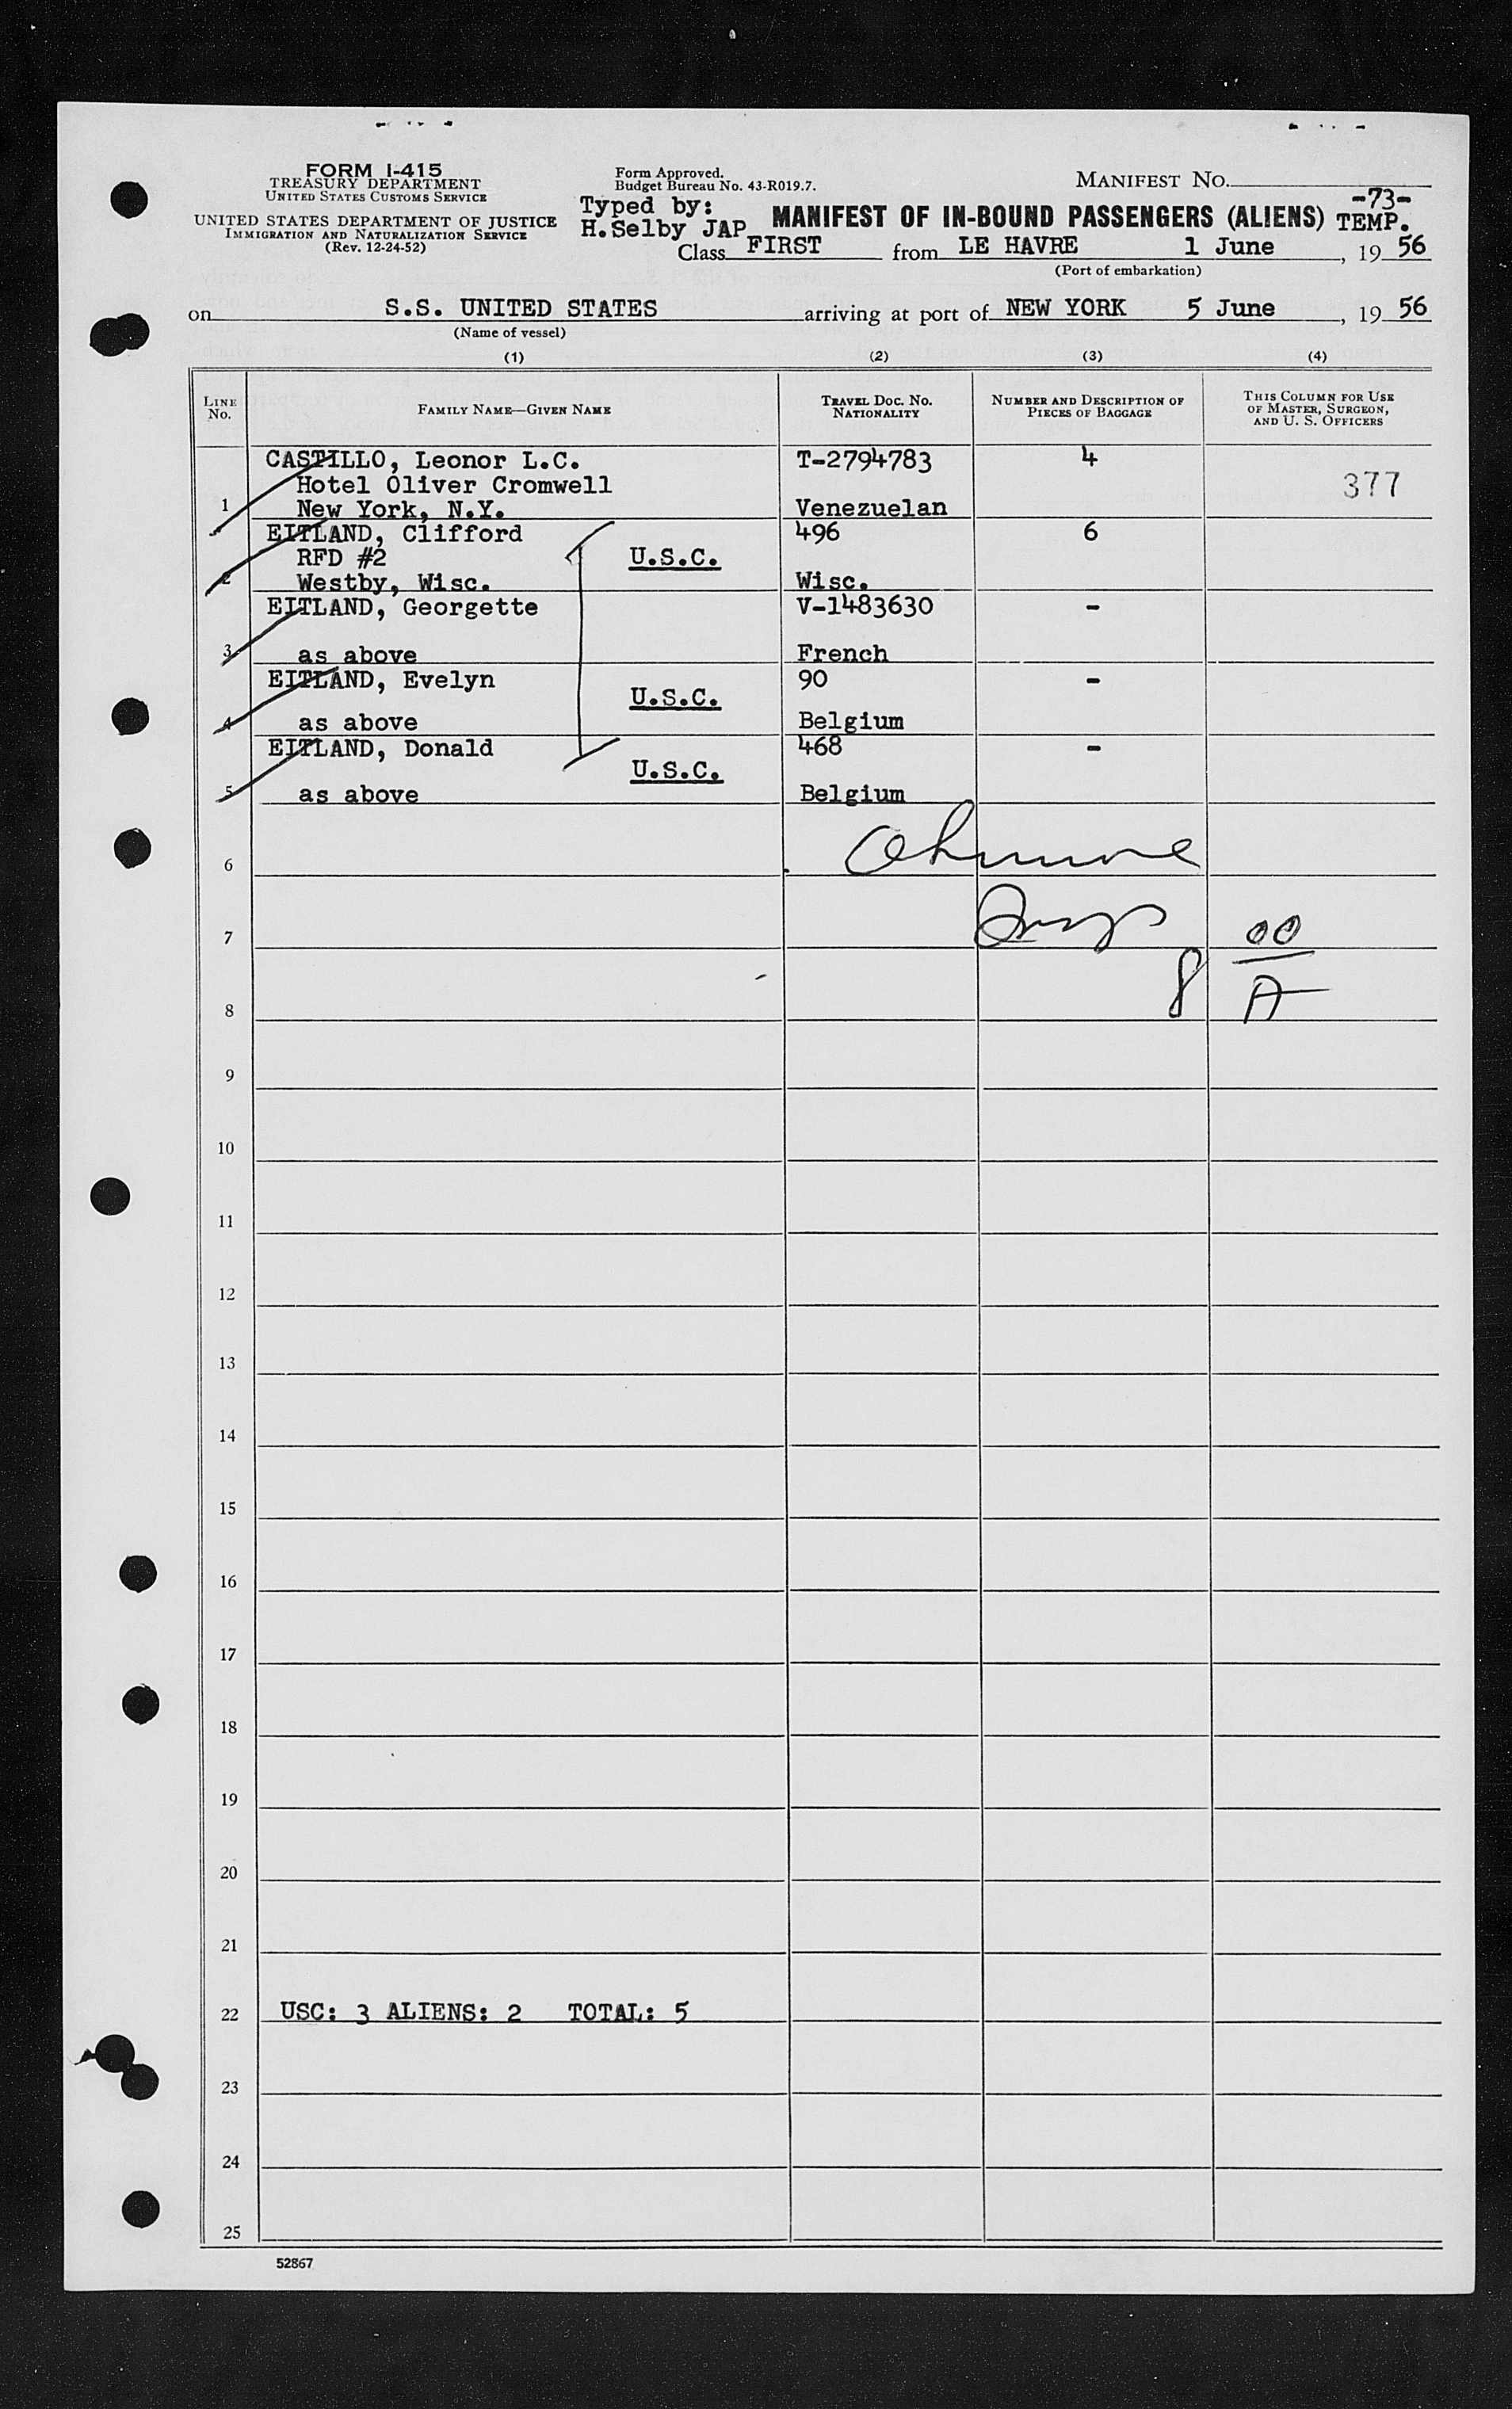 FORM I-415
TREASURY DEPARTMENT
UNITED STATES CUSTOMS SERVICE
UNITED STATES DEPARTMENT OF JUSTICE
IMMIGRATION AND NATURALIZATION SERVICE
(Rev. 12-24-52)
Form Approved.
Budget Bureau No. 43-R019.7.
Typed by:
H.Selby JAP
MANIFEST NO.
-73-
MANIFEST OF IN-BOUND PASSENGERS (ALIENS) TEMP.
Class FIRST from LE HAVRE 1 June, 19 56
(Port of embarkation)
on S.S. UNITED STATES arriving at port of NEW YORK 5 June, 19 56
(Name of vessel)
(1) (2) (3) (4)
LINE NO. FAMILY NAME—GIVEN NAME TRAVEL DOC. NO. NATIONALITY NUMBER AND DESCRIPTION OF PIECES OF BAGGAGE THIS COLUMN FOR USE OF MASTER, SURGEON, AND U. S. OFFICERS
CASTILLO, Leonor L.C. T-2794783 4
Hotel Oliver Cromwell 377
1 New York, N.Y. Venezuelan
EITLAND, Clifford 496 6
RFD #2 U.S.C.
2 Westby, Wisc. Wisc.
EITLAND, Georgette V-1483630 -
3 as above French
EITLAND, Evelyn U.S.C. 90 -
4 as above Belgium
EITLAND, Donald 468 -
U.S.C.
5 as above Belgium
6
7 00
8 8 A
9
10
11
12
13
14
15
16
17
18
19
20
21
22 USC: 3 ALIENS: 2 TOTAL: 5
23
24
25
52867